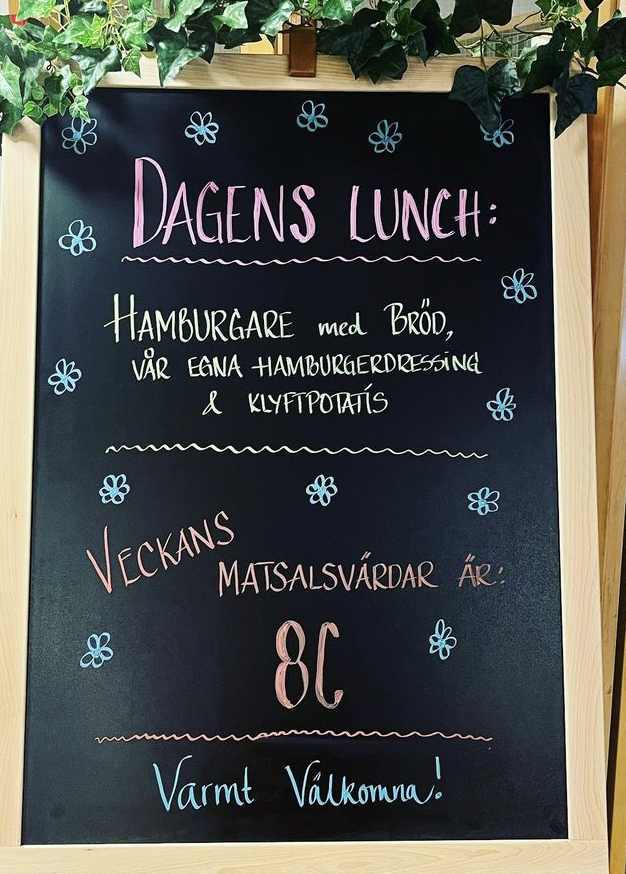 DAGENS LUNCH:
HAMBURGARE med BRÖD,
VÅR EGNA HAMBURGERDRESSING
& KLYFTPOTATIS
VECKANS
MATSALSVÄRDAR ÄR:
8C
Varmt Välkomna!